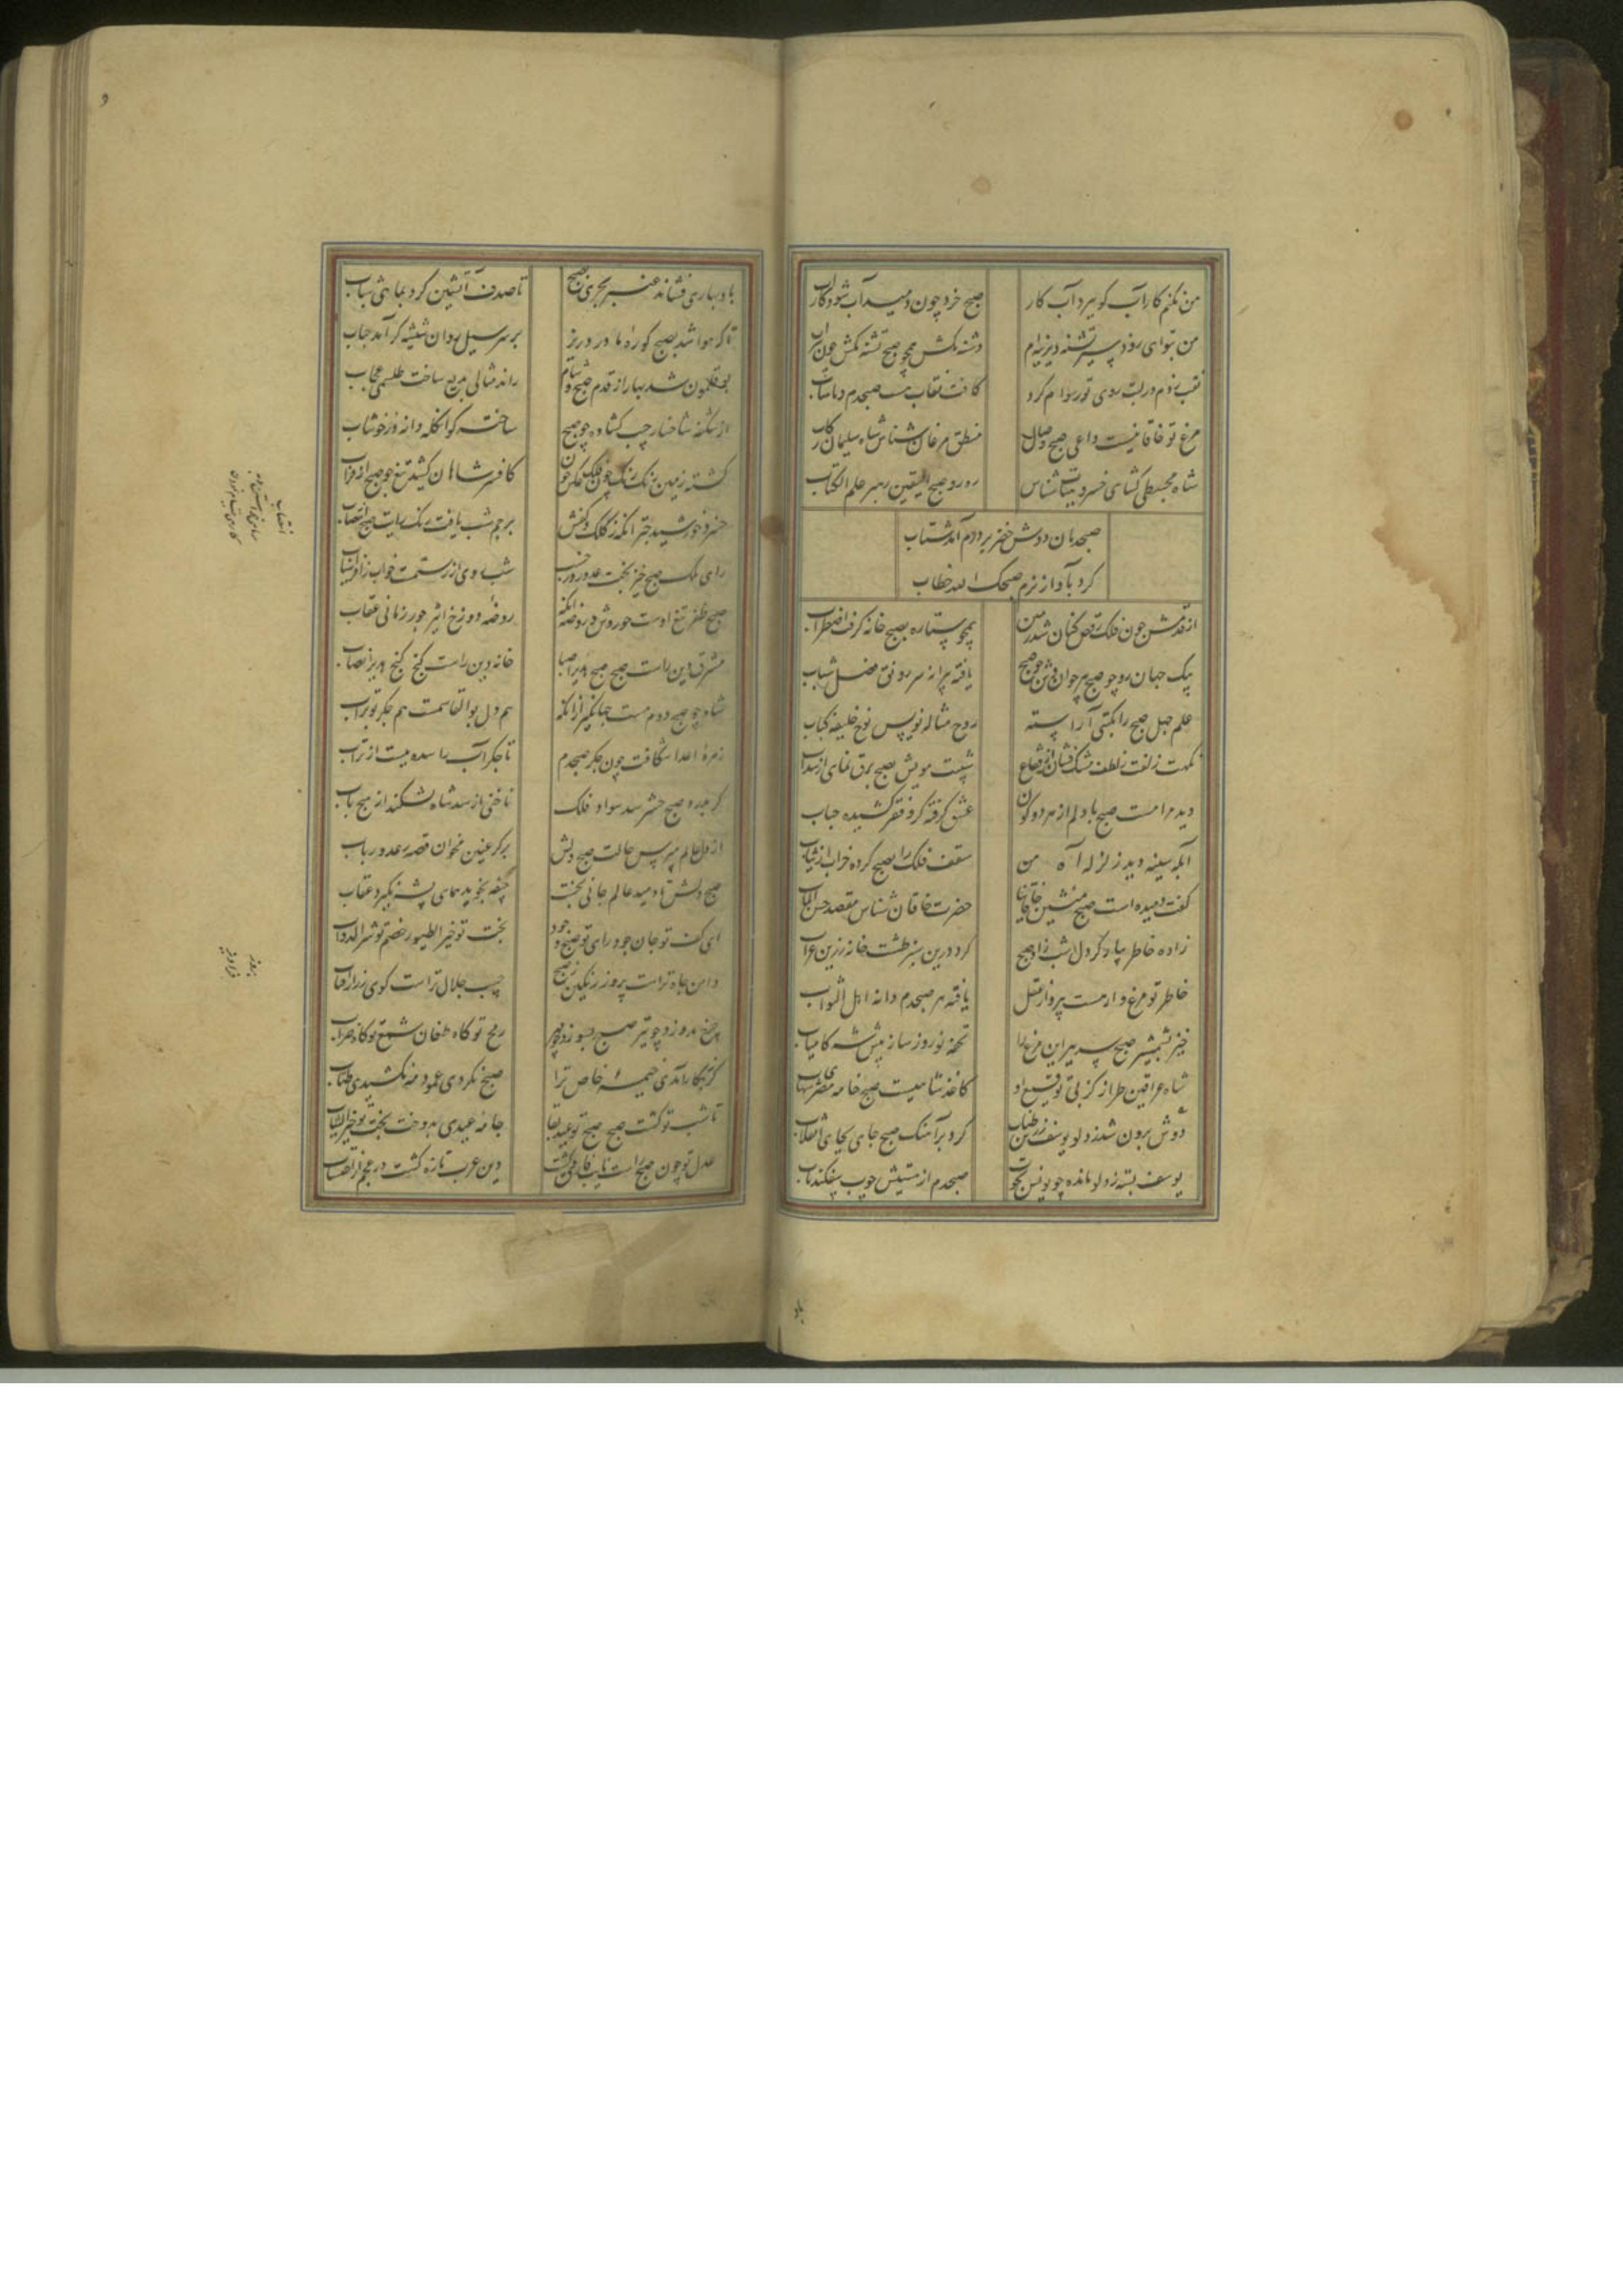 من نکنم کار آب کو ببرد آب کار
صبح خرد چون دمید آب شود کار آب
من بتوای زود سیر تشنه دیرینه‌ام
دشنه مکش همچو صبح تشنه مکش چون سراب
نقب زدم در لبت روی تو رسوام کرد
کافت نقاب هست صبحدم و ماهتاب
مرغ تو خاقانیست داعی صبح وصال
منطق مرغان شناس شاه سلیمان رکاب
شاه مجسطی گشای خسرو هیئت شناس
رهرو صبح الیقین رهبر علم الکتاب
صبحدمان دوش خضر بر درم آمد شتاب
کرد بآواز نرم صبحک الله خطاب
از قدمش چون فلک رقص کنان شد زمین
همچو ستاره بصبح خانه گرفت اضطراب
پیک جهان رو چو صبح پیر جوان وش چو صبح
یافته پیرانه سر رونق فصل شباب
علم جبل صبح را بکتی آراسته
روح مثاله نویس نوح خلیفه کتاب
نکهت زلفت ز لطف مشک فشان
شیبت مویش بصبح برق نمای از سداب
دید مرا مست صبح با دلم از هر دو کون
عشق گرفته گرو فقر کشیده جناب
آبله سینه دید زلزله آه من
سقف فلک را بصبح کرده خراب
گفت دمیده است صبح منشین خاقانیا
حضرت خاقان شناس مقصد حسن المآب
زاده خاطر بیار کز دل شب زاد صبح
کرد درین سبز طشت خانه زرین غراب
خاطر تو مرغ وار هست بپرواز عقل
یافته هر صبحدم دانه اهل الثواب
خیز بشمشیر صبح سر ببر این مرغ را
تحفه نوروز ساز پیش شه کامیاب
شاه عراقین طراز کز پی توقیع او
کاغذ شامیست صبح خامه مصری شهاب
دوش برون شد ز دلو یوسف زرین طناب
کرد بر آهنگ صبح جای بجای انقلاب
یوسف رسته ز دلو مانده چو یونس بحوت
صبحدم از هیبتش حوت بیفکند ناب
باد
باد بهاری فشاند عنبر بحری بصبح
تا صدف آتشین کرد بماهی شتاب
تا که هوا شد بصبح کوره ماورد ریز
بر سر سیل روان شیشه گر آمد حباب
بوقلمون شد بهار از قدم صبح و شام
راند مثالی بدیع ساخت طلسمی عجاب
از شکفه شاخسار جیب گشاده چو صبح
ساخته گوی انگله دانه در خوشاب
گشته زمین رنگ رنگ چون فلک
کافسر شاهان کشید تیغ چو صبح از قراب
خسرو خورشید چتر آنکه ز کلک و کفش
پرچم شب یافت رنگ رایت صبح انتصاب
رای ملک صبح خیز بخت عدو روز خسب
شب روی از رستمست خواب ز افراسیاب
صبح ظفر تیغ اوست حوروش و روضه آنکه
روضه دوزخ اثیر حور زبانی عقاب
مشرق دین راست صبح صبح هدی را صبا
خانه دین راست گنج گنج هدی را نصاب
شاه چو صبح دوم هست جهانگیر از آنکه
هم دل بوالقاسمست هم جگر بوتراب
زهره اعدا شکافت چون جگر صبحدم
تا جگر آب را سده بیست از تراب
گر بدرد صبح حشر سد سواد فلک
ناخنی از سد شاه نشکند از هیچ باب
از دل عالم مپرس حالت صبح دلش
بر کر عنین مخوان قصه رعد و رباب
صبح دلش تا دمید عالم جافی بخت
جیفه نجوید همای پشه نگیرد عقاب
ای کف تو جان جود رای تو صبح وجود
بخت تو خیر الطیور خصم تو شر الدواب
دامن جاه تراست پرور زرین ز صبح
جیب جلال تراست گوی زر از آفتاب
چرخ بدوزد چو تیر صبح بسوزد چو مهر
رمح تو گاه طعان تیغ تو گاه ضراب
گر بگار آمدی خیمه خاص ترا
صبح نکردی عمود مه نکشیدی طناب
تا شب تو گشت صبح صبح تو عید بقا
جامه عیدی بدوخت بخت تو خیر الثیاب
عدل تو چون صبح راست نایب فاروق گشت
دین عرب تازه گشت در عجم از احتساب